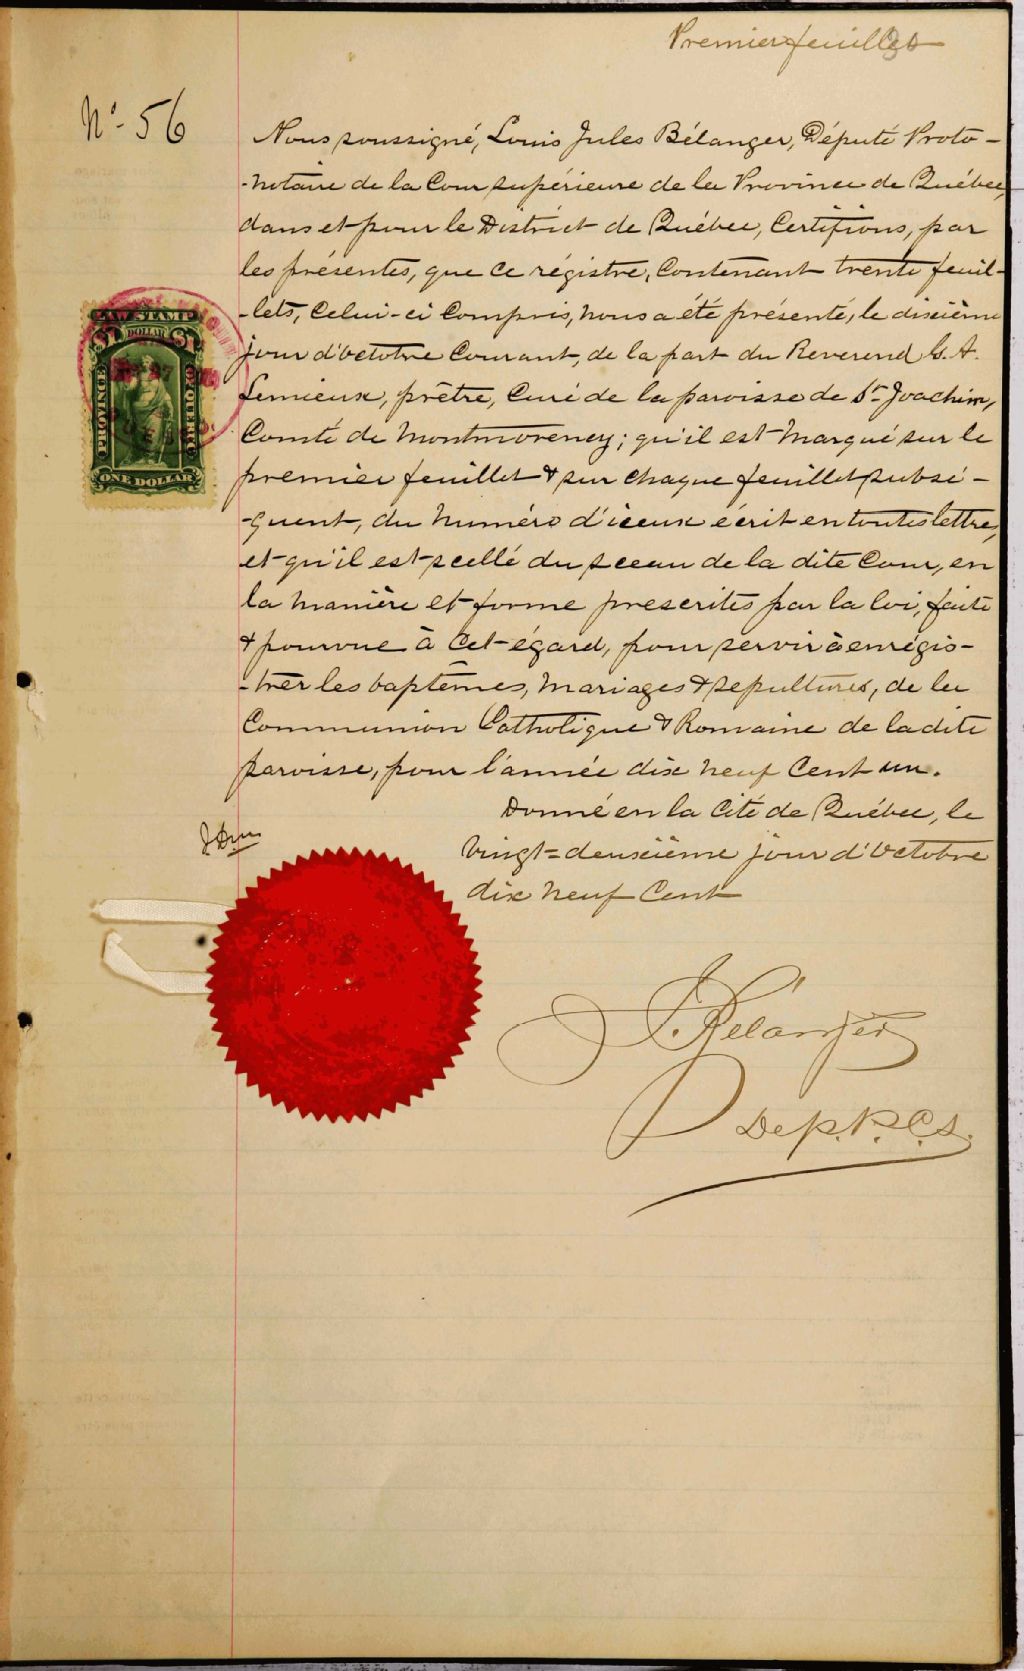 Premier feuillet
N° 56
Nous soussigné, Louis Jules Bélanger, Député Proto-
-notaire de la Cour supérieure de la Province de Québec,
dans et pour le District de Québec, Certifions, par
les présentes, que ce régistre, contenant trente feuil-
-lets, celui-ci compris, nous a été présenté, le dixième
jour d'octobre courant, de la part du Reverend G. A.
Lemieux, prêtre, Curé de la paroisse de St Joachim,
Comté de Montmorency; qu'il est marqué sur le
premier feuillet & sur chaque feuillet subsé-
-quent, du numéro d'iceux écrit en toutes lettres,
et qu'il est scellé du sceau de la dite Cour, en
la manière et forme prescrites par la loi, faite
& pourvue à cet égard, pour servir à enrégis-
-trer les baptêmes, mariages & sepultures, de la
Communion Catholique & Romaine de la dite
paroisse, pour l'année dix neuf cent un.
Donné en la Cité de Québec, le
vingt=deuxième jour d'Octobre
dix neuf Cent
J. Bélanger
Dep. P. C. S.
LAW STAMP
$1 DOLLAR $1
PROVINCE
OF QUEBEC
ONE DOLLAR